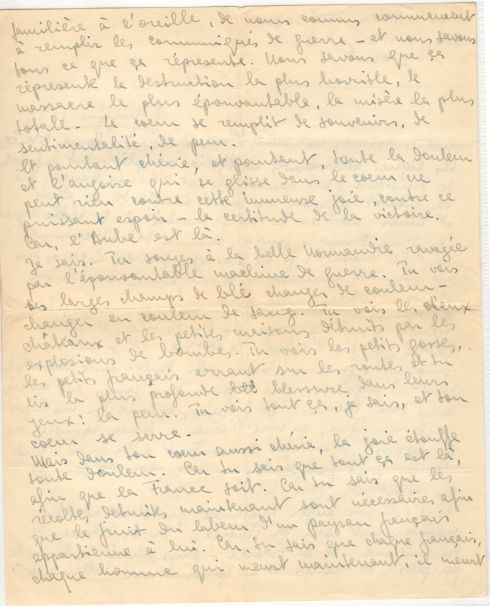 familière à l'oreille, de noms connus commencent
à remplir les communiqués de guerre - et nous savons
tous ce que ça représente. Nous savons que ça
représente la destruction la plus horrible, le
massacre le plus épouvantable, la misère la plus
totale - Le coeur se remplit de souvenirs, de
sentimentalité, de peur.
Et pourtant chérie, et pourtant, toute la douleur
et l'angoisse qui se glisse dans le coeur ne
peut rien contre cette immense joie, contre ce
puissant espoir - la certitude de la victoire.
Car, l'Aube est là.
Je sais. Tu songes à la belle Normandie ravagée
par l'épouvantable machine de guerre. Tu vois
ses larges champs de blé changer de couleur -
changer en couleur de sang. Tu vois les vieux
châteaux et les petites maisons détruits par les
explosions de bombes. Tu vois les petits gosses,
les petits français errant sur les routes et tu
lis la plus profonde blessure dans leurs
yeux: la peur. Tu vois tout ça, je sais, et ton
coeur se serre -
Mais dans ton coeur aussi chérie, la joie étouffe
toute douleur. Car tu sais que tout ça est là,
afin que la France soit. Car tu sais que les
récoltes detruites maintenant sont nécessaires afin
que le fruit du labeur d'un paysan français
appartienne à lui. Car, tu sais que chaque français,
chaque homme qui meurt maintenant, il meurt